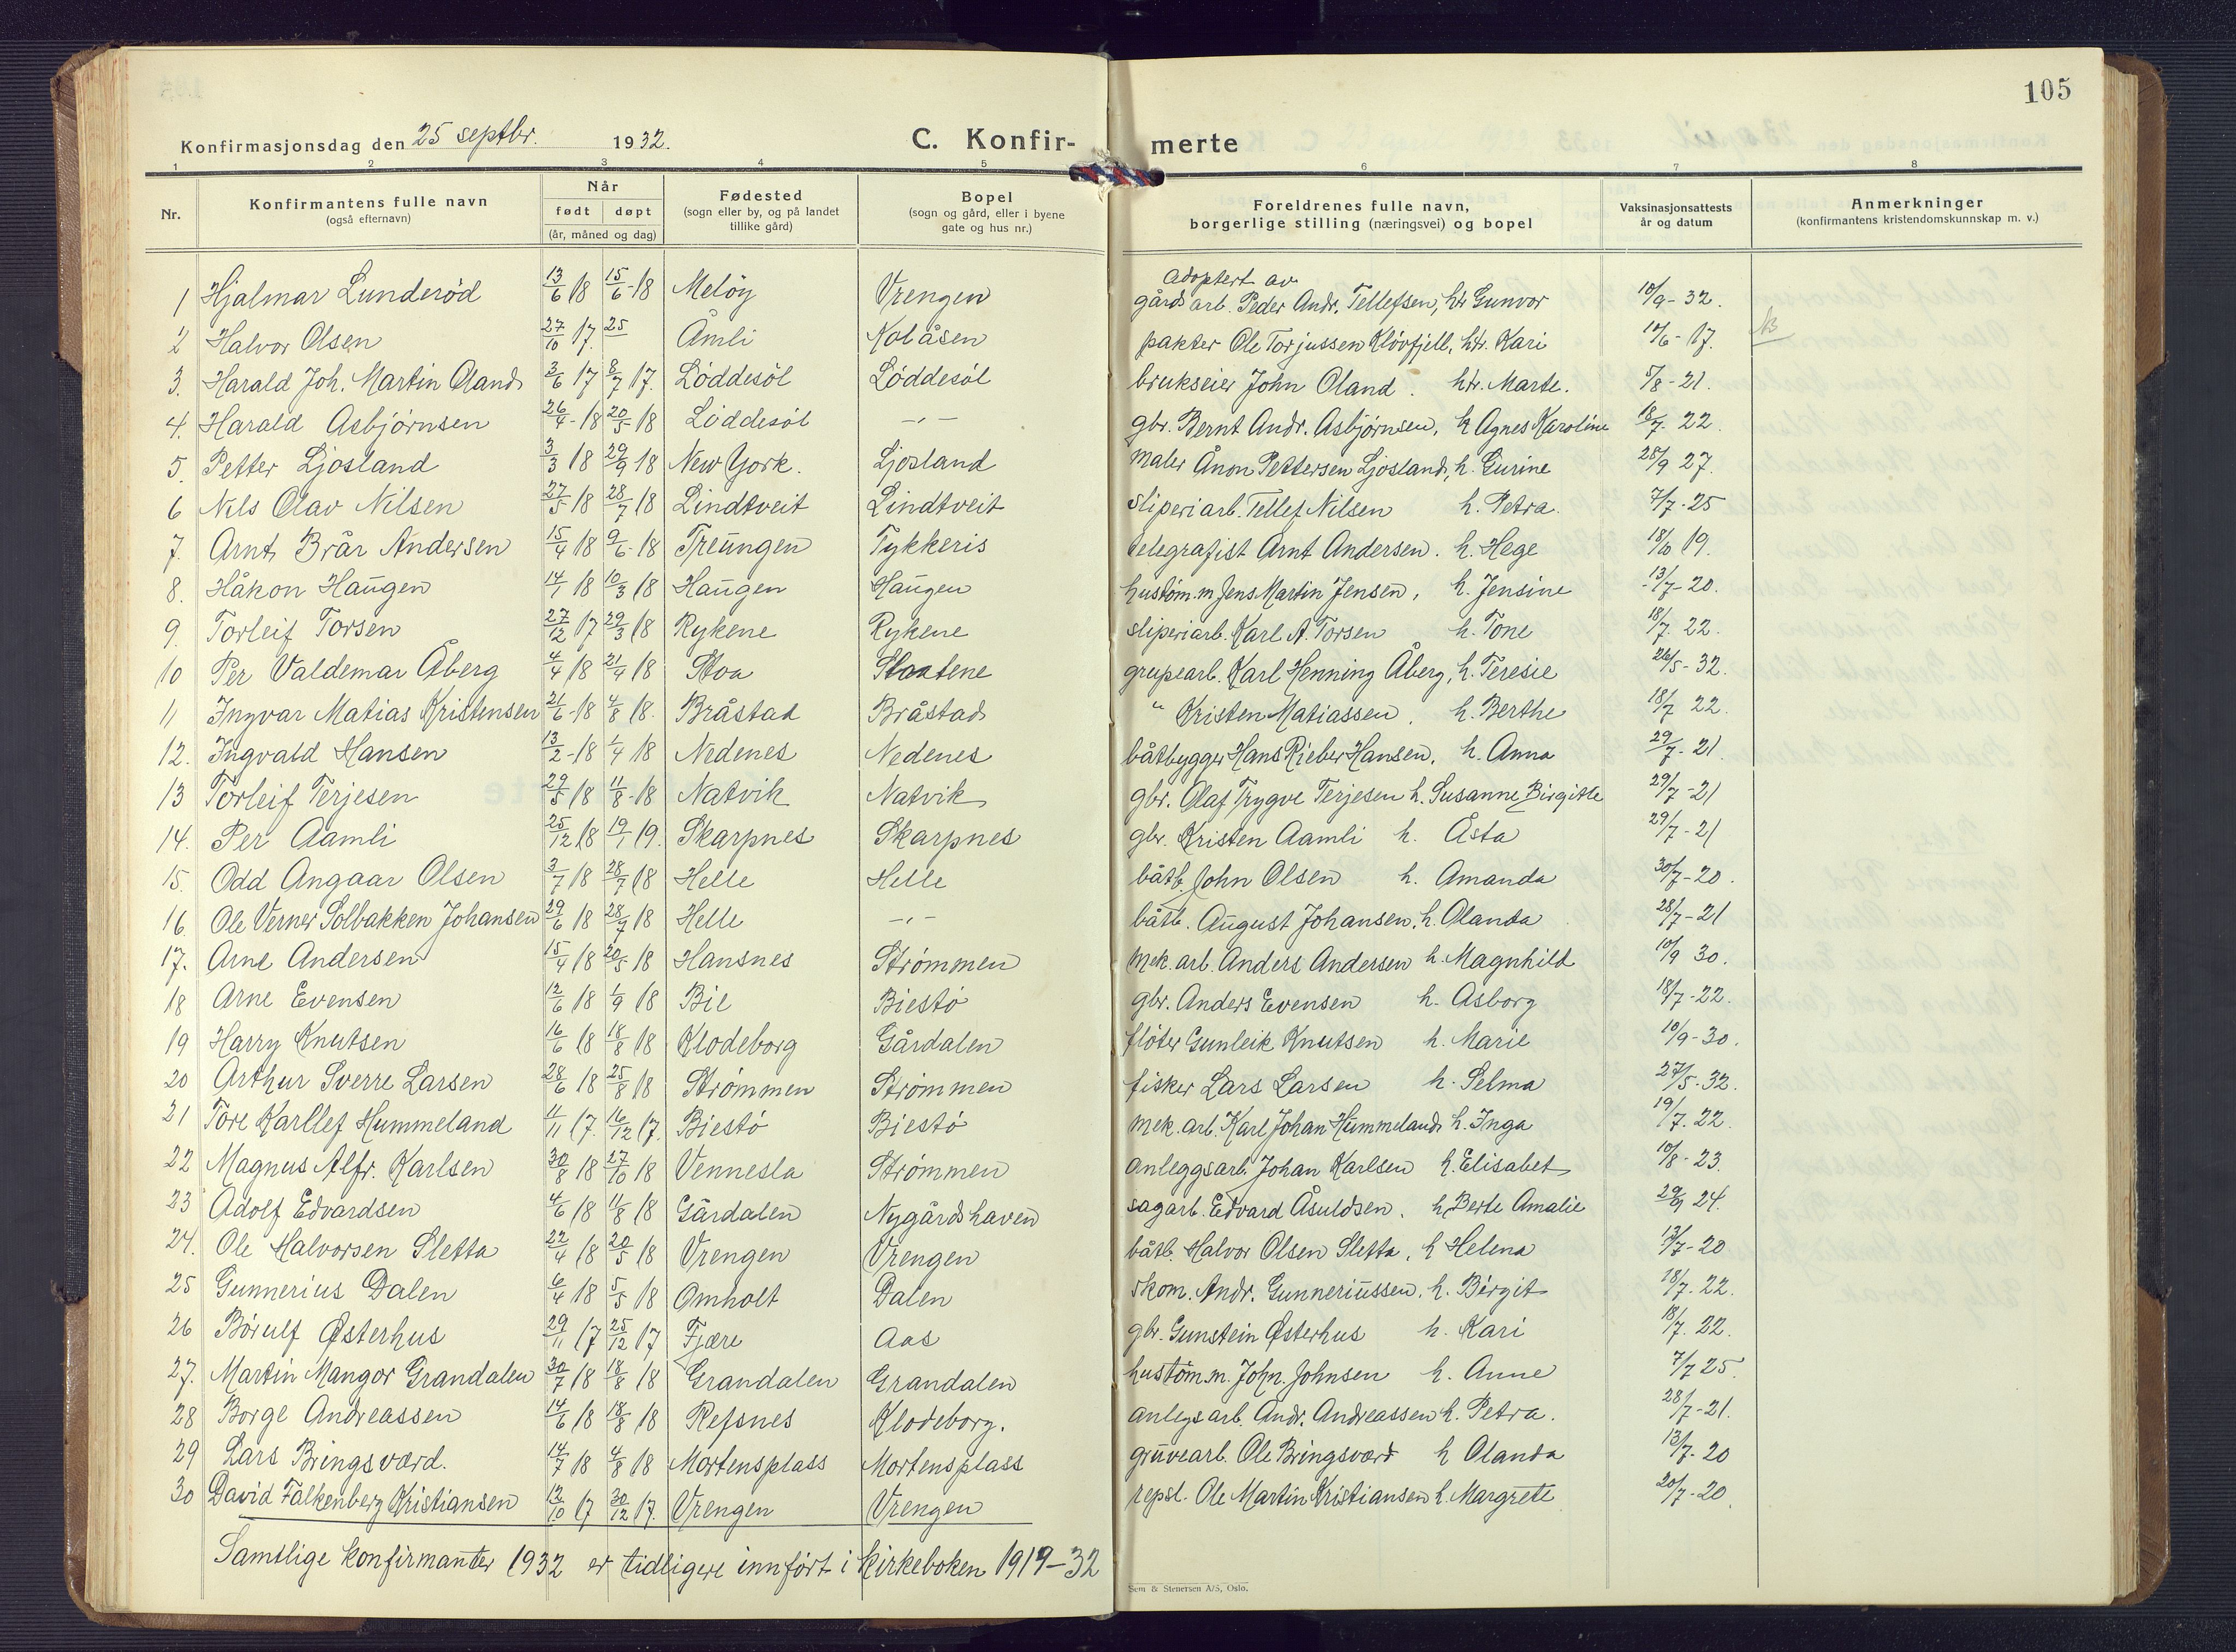 105
Konfirmasjonsdag den 25 septbr. 1932. C. Konfir- merte
1 2 3 4 5 6 7 8
Nr. Konfirmantens fulle navn (også efternavn) Når født døpt (år, måned og dag) Fødested (sogn eller by, og på landet tillike gård) Bopel (sogn og gård, eller i byene gate og hus nr.) Foreldrenes fulle navn, borgerlige stilling (næringsvei) og bopel Vaksinasjonsattests år og datum Anmerkninger (konfirmantens kristendomskunnskap m. v.)
adoptert av
1 Hjalmar Lunderød 13/6 18 15/6-18 Meløy Vrengen gårdsarb. Peder Andr. Tellefsen, htr Gunvor 10/9-32.
2 Halvor Olsen 27/10 17. 25 Åmli Kolåsen pakter Ole Torjussen Kløvfjell, htr. Kari 10/6-17.
3. Harald Joh. Martin Oland 3/6 17 8/7 17. Løddesøl Løddesøl brukseier John Oland. htr. Marte. 5/8-21.
4. Harald Asbjørnsen 26/4-18 20/5-18 Løddesøl —,,— gbr. Bernt Andr. Asbjørnsen, h Agnes Karoline 18/7 22.
5. Petter Ljosland 3/3 18 29/9 18 New York. Ljosland maler Ånon Pettersen Ljosland, h. Gurine 28/9 27.
6 Nils Olav Nilsen 27/5 18 28/7 18 Lindtveit Lindtveit sliperiarb. Tellef Nilsen h. Petra. 7/7-25
7. Arnt Brår Andersen 15/4 18 9/6-18 Treungen Tykkeris telegrafist Arnt Andersen. h. Hege 18/10 19.
8. Håkon Haugen 14/1 18 10/3 18 Haugen Haugen hustøm.m Jens Martin Jensen, h. Jensine 13/7-20.
9. Torleif Torsen 27/12 17 29/3 18 Rykene Rykene sliperiarb. Karl A. Torsen h. Tone 18/7. 22.
10 Per Valdemar Åberg 4/4 18 21/4 18 Stoa Slaatene grupearb. Karl Henning Åberg, h. Teresie 26/5-32.
11 Ingvar Matias Kristensen 21/6-18 4/8 18. Bråstad Bråstad " Kristen Matiassen. h. Berthe 18/7 22.
12. Ingvald Hansen 13/2-18 1/4 18 Nedenes Nedenes båtbygger Hans Rieber Hansen, h. Anna 29/7-21
13 Torleif Terjesen 29/5 18 11/8-18 Natvik Natvik gbr. Olaf Trygve Terjesen h. Susanne Birgitte 29/7-21
14. Per Aamli 25/12 18 19/1 19. Skarpnes Skarpnes gbr. Kristen Aamli h. Åsta 29/7-21
15. Odd Angaar Olsen 3/7 18 28/7 18 Helle Helle båtb. John Olsen h. Amanda 30/7-20.
16. Ole Verner Solbakken Johansen 29/6 18 28/7 18 Helle —,,— båtb. August Johansen, h. Olanda 28/7-21
17. Arne Andersen 15/4 18 20/5 18 Hansnes Strømmen mek. arb. Anders Andersen h. Magnhild 10/9 30.
18 Arne Evensen 12/6 18 1/9 18 Bie Biestø gbr. Anders Evensen h. Asborg 18/7-22.
19 Harry Knutsen 16/6 18 18/8 18 Klodeborg Gårdalen fløter Gunleik Knutsen h. Marie 10/9-30.
20 Arthur Sverre Larsen 28/6 18 25/8 18 Strømmen Strømmen fisker Lars Larsen h. Selma 27/5-32.
21 Tore Karllef Hummeland 11/11 17. 16/12 17. Biestø Biestø mek. arb. Karl Johan Hummeland h. Inga 19/7. 22.
22 Magnus Alfr. Karlsen 30/8 18 27/10 18 Vennesla Strømmen anleggsarb. Johan Karlsen h. Elisabet 10/8-23.
23 Adolf Edvardsen 4/6 18 11/8 18 Gårdalen Nygårdshaven sagarb. Edvard Åsuldsen. h Berte Amalie 29/9 24.
24. Ole Halvorsen Sletta 22/4 18 20/5 18 Vrengen Vrengen båtb. Halvor Olsen Sletta, h Helena 13/7-20
25 Gunnerius Dalen 6/4 18 5/5 18 Omholt Dalen skom. Andr. Gunneriussen, h. Birgit 18/7. 22.
26 Børulf Østerhus 29/11 17 25/12 17 Fjære Aas gbr. Gunstein Østerhus h. Kari 18/7. 22.
27. Martin Mangor Grandalen 30/7 18 18/8 18 Grandalen Grandalen hustøm.m. John. Johnsen h. Anne 7/7 25.
28 Borge Andreassen 14/6 18 18/8 18 Refsnes Klodeborg. anlegsarb. Andr. Andreassen h. Petra. 28/7-21.
29 Lars Bringsværd. 14/7 18 4/8 18 Mortensplass Mortensplass gruvearb. Ole Bringsværd h Olanda 13/7-20
30 David Falkenberg Kristiansen 12/10 17 30/12 17. Vrengen Vrengen repsl. Ole Martin Kristiansen h. Margrete 20/7-20
Samtlige konfirmanter 1932 er tidligere innført i kirkeboken 1919-32
Sem & Stenersen A/S, Oslo.